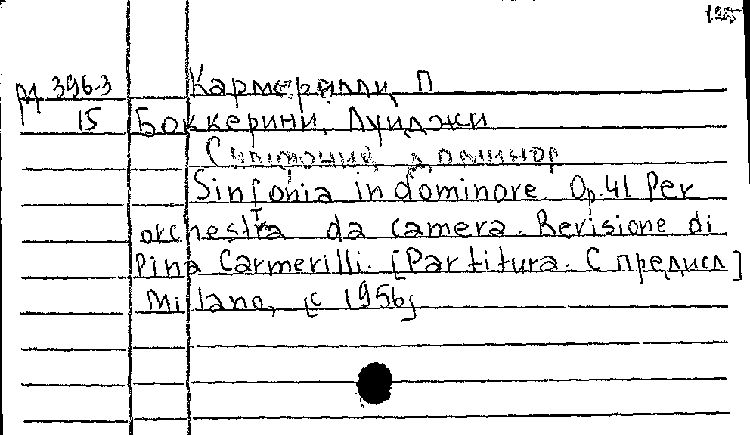 М 396-3 Кармерилли, П
15 Боккерини, Луиджи
Симфония, до минор
Sinfonia in dominore Op.41 Per
orchestra da camera. Revisione di
Pina Carmerilli. [Partitura. С предисл]
Milano, [c 1956]